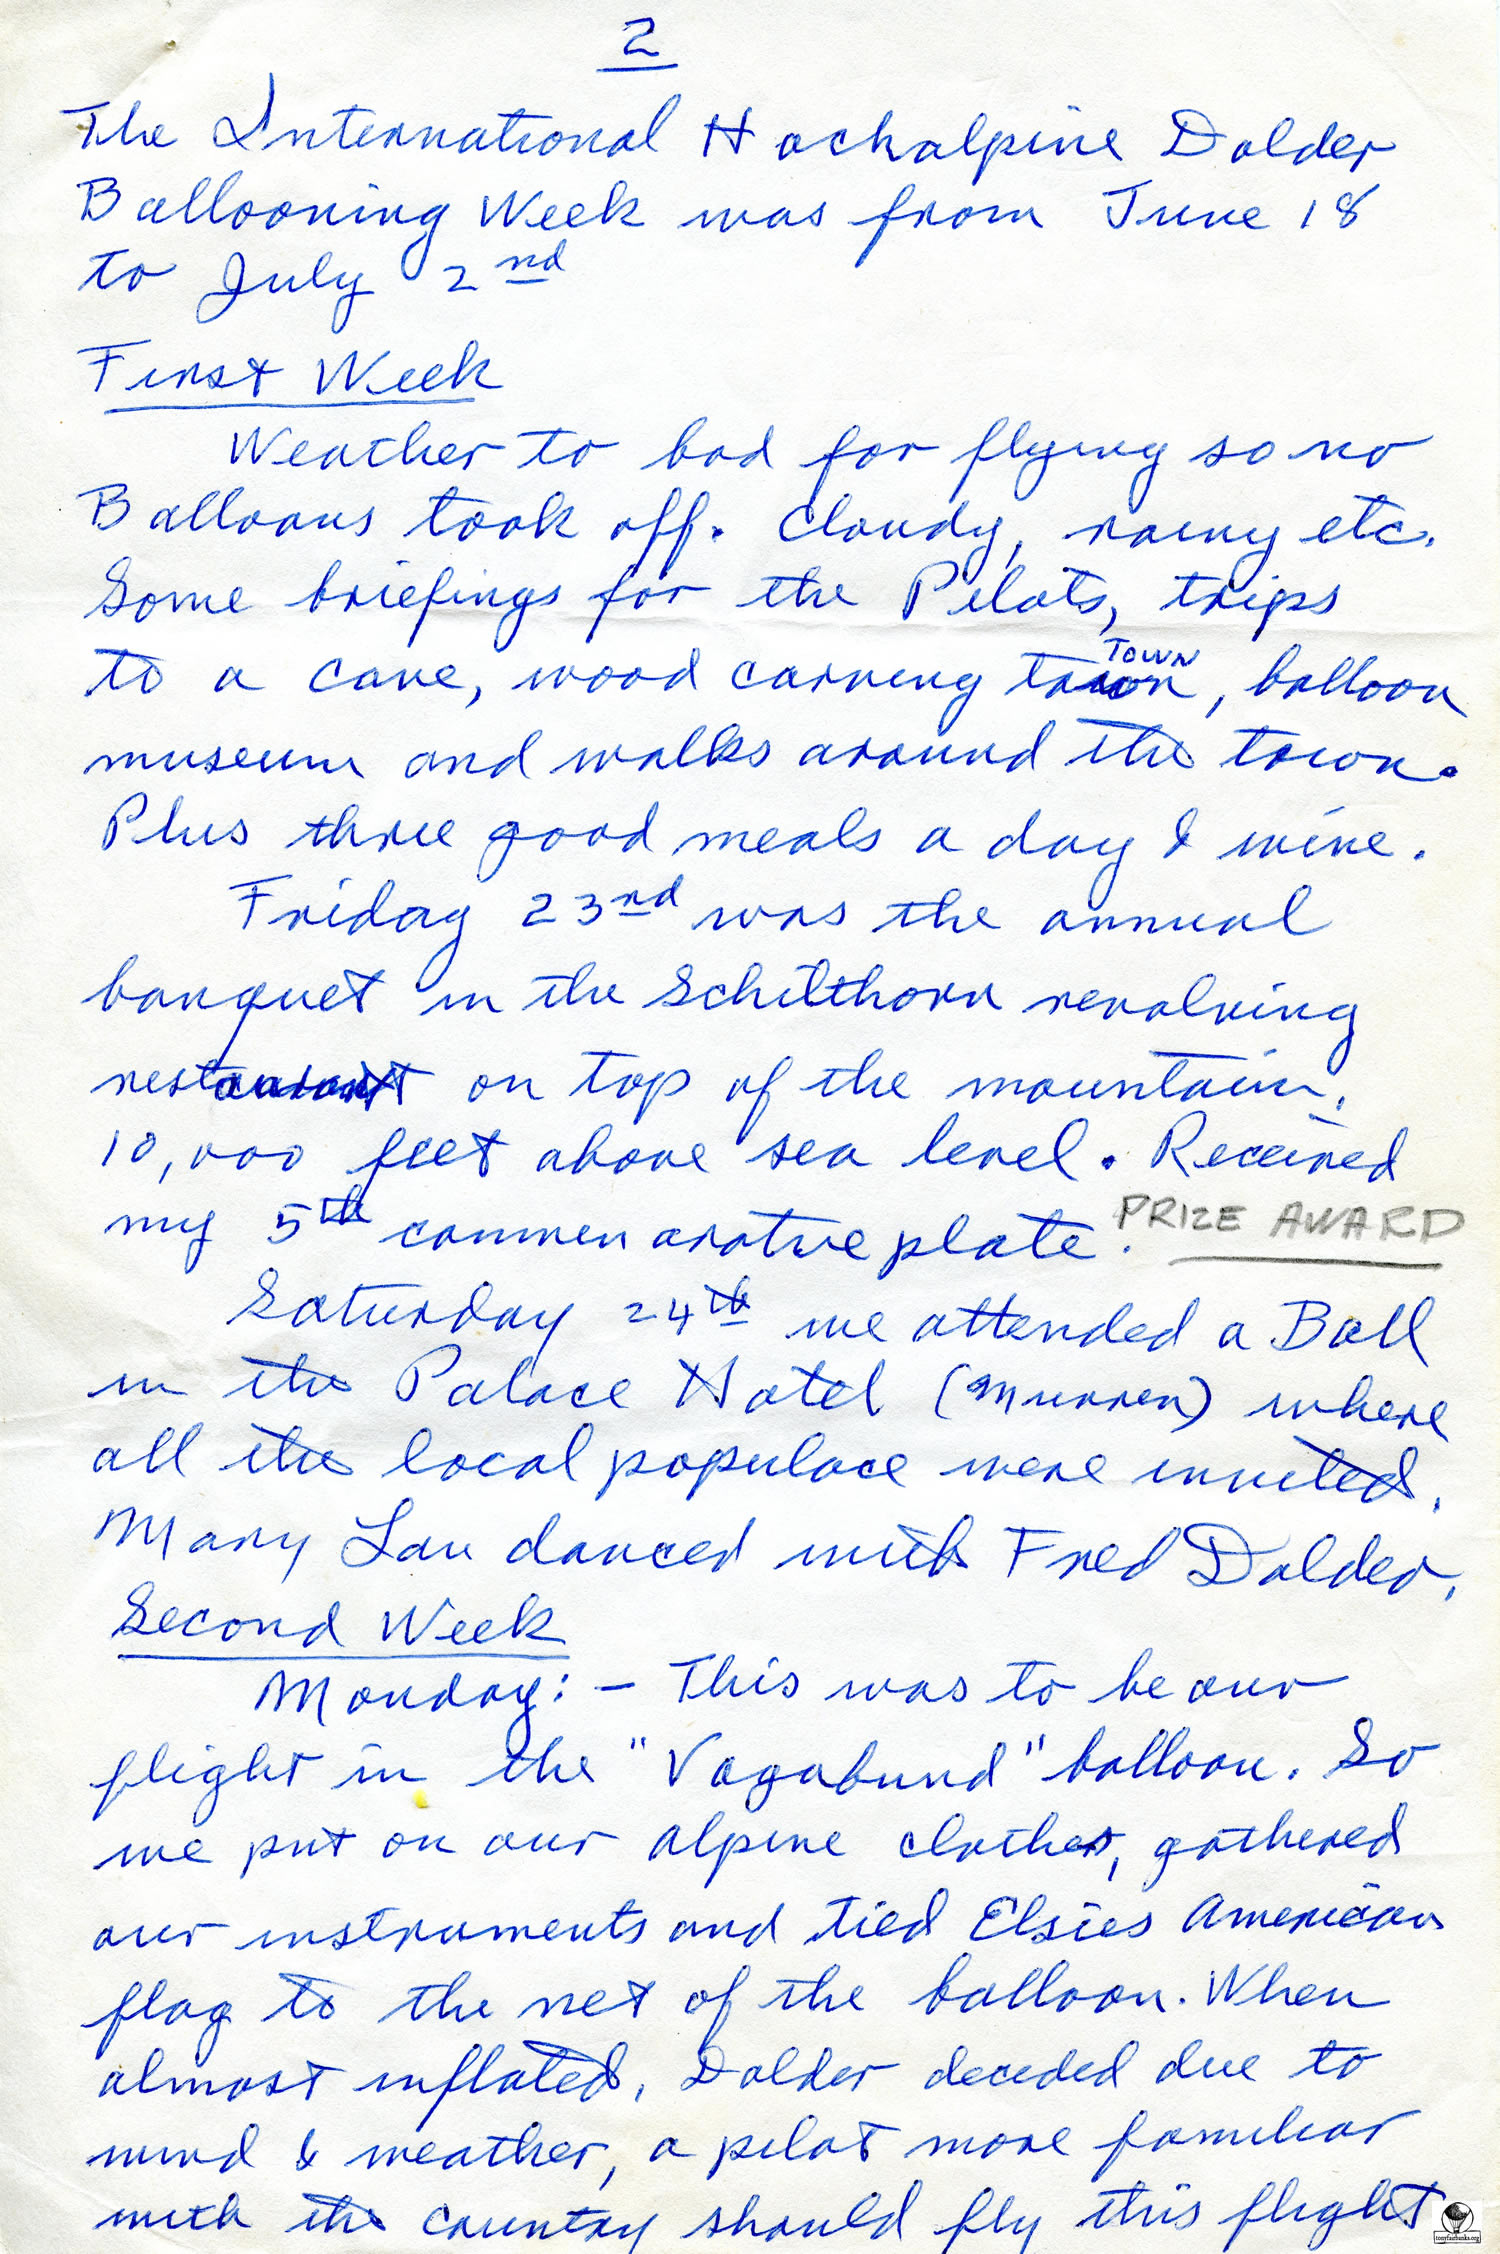 2
The International Hochalpine Dolder
Ballooning Week was from June 18
to July 2nd
First Week
Weather to bad for flying so no
Balloons took off. Cloudy, rainy etc.
Some briefings for the Pilots, trips
to a cave, wood carving town TOWN, balloon
museum and walks around the town.
Plus three good meals a day & wine.
Friday 23rd was the annual
banquet in the Schilthorn revolving
restaurant on top of the mountain,
10,000 feet above sea level. Received
my 5th commemorative plate. PRIZE AWARD
Saturday 24th we attended a Ball
in the Palace Hotel (Murren) where
all the local populace were invited.
Mary Lou danced with Fred Dolder.
Second Week
Monday: - This was to be our
flight in the "Vagabund" balloon. So
we put on our alpine clothes, gathered
our instruments and tied Elsies American
flag to the net of the balloon. When
almost inflated, Dolder decided due to
wind & weather, a pilot more familiar
with the country should fly this flight
tonyfairbanks.org